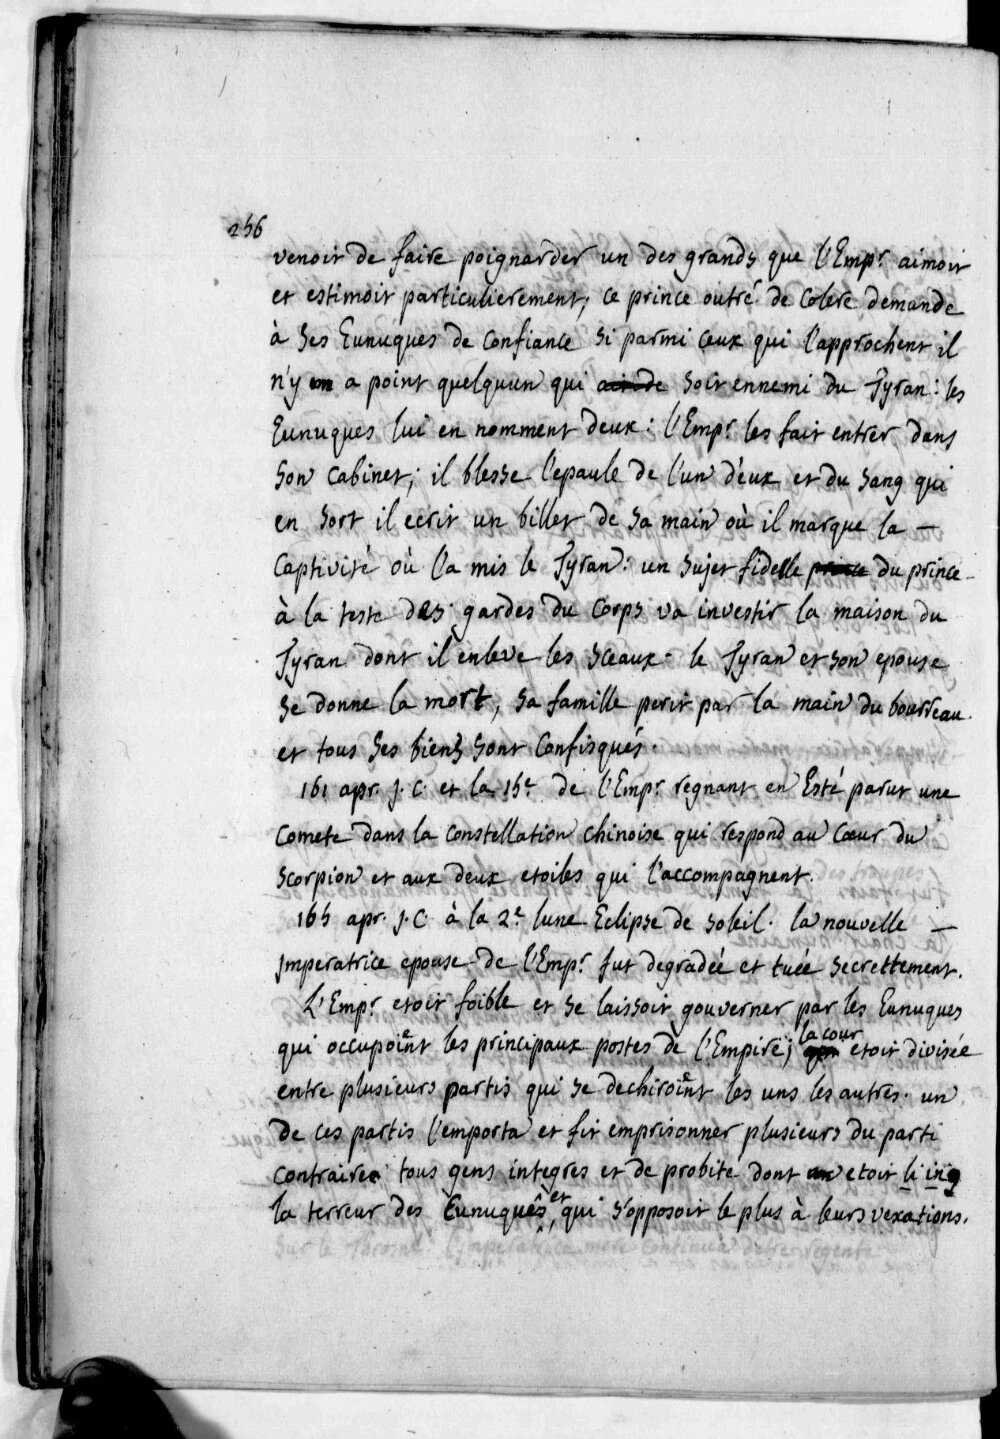 256
venoit de faire poignarder un des grands que l'Empr. aimoit
et estimoit particulierement; ce prince outré de colere demande
à ses Eunuques de confiance si parmi ceux qui l'approchent il
n'y en a point quelquun qui soit ennemi du Tyran: les
Eunuques lui en nomment deux: l'Empr. les fait entrer dans
son cabinet; il blesse l'epaule de l'un d'eux et du sang qui
en sort il ecrit un billet de sa main où il marque la —
captivité où l'a mis le Tyran: un sujet fidelle prince du prince
à la teste des gardes du corps va investir la maison du
Tyran dont il enleve les sceaux. le Tyran et son epouse
se donne la mort, sa famille perit par la main du bourreau.
et tous ses biens sont confisqués.
161 apr. J. C. et la 15e de l'Empr. regnant en Esté parut une
comete dans la constellation chinoise qui respond au Cœur du
scorpion et aux deux etoiles qui l'accompagnent.
165 apr. J. C. à la 2e lune Eclipse de soleil. la nouvelle —
Imperatrice epouse de l'Empr. fut degradée et tuée secrettement.
L'Empr. etoit foible et se laissoit gouverner par les Eunuques
qui occupoient les principaux postes de l'Empire; la cour etoit divisée
entre plusieurs partis qui se dechiroient les uns les autres. un
de ces partis l'emporta et fit emprisonner plusieurs du parti
contraire tous gens integres et de probité dont etoit li ing
la terreur des Eunuques, et qui s'opposoit le plus à leurs vexations.